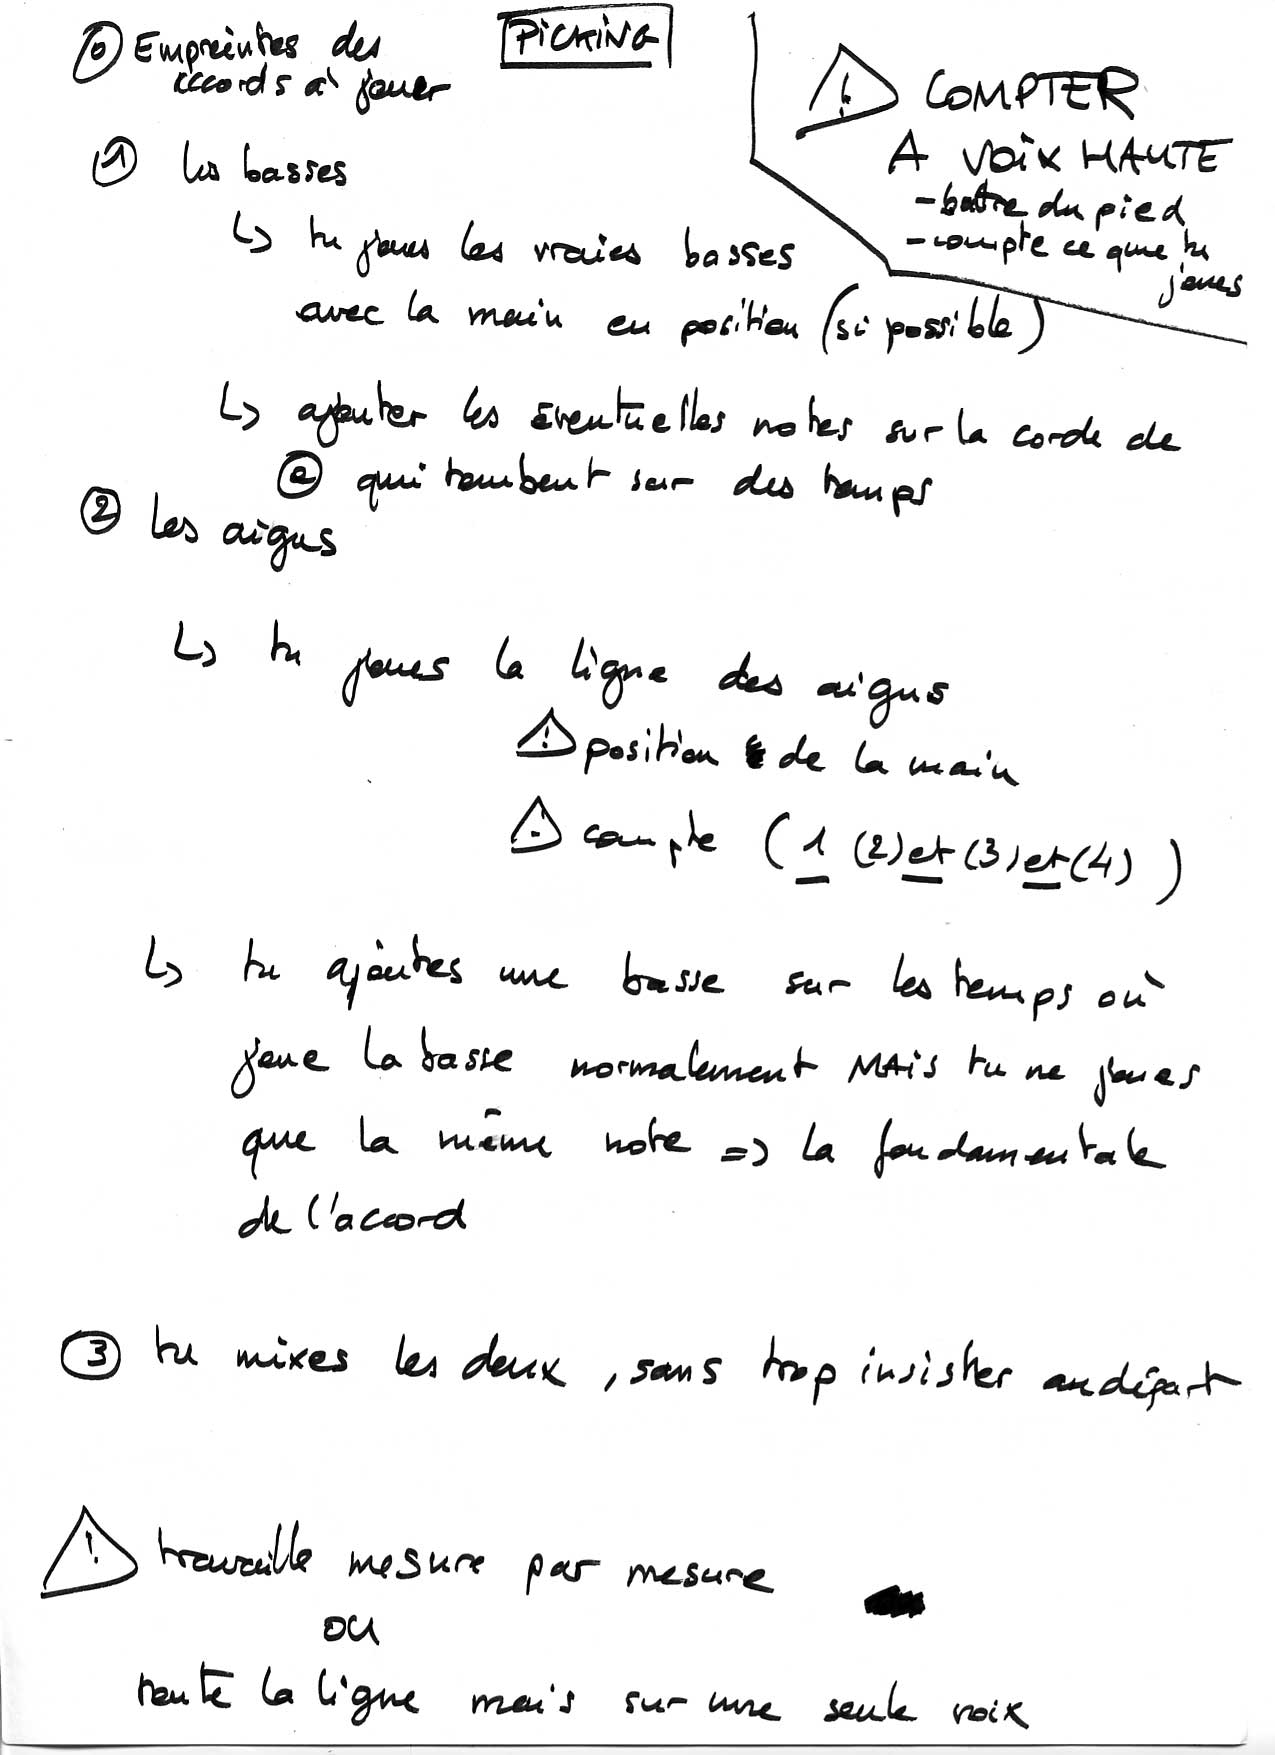 PICKING
⓪ Empreintes des
accords à jouer
⚠ COMPTER
A VOIX HAUTE
- battre du pied
- compte ce que tu
joues
① les basses
↳ tu joues les vraies basses
avec la main en position (si possible)
↳ ajouter les éventuelles notes sur la corde de
qui tombent sur des temps
② les aigus
↳ tu joues la ligne des aigus
⚠ position de la main
⚠ compte (1 (2) et (3) et (4))
↳ tu ajoutes une basse sur les temps où
joue la basse normalement MAIS tu ne joues
que la même note => la fondamentale
de l'accord
③ tu mixes les deux, sans trop insister au départ
⚠ travaille mesure par mesure
OU
toute la ligne mais sur une seule voix